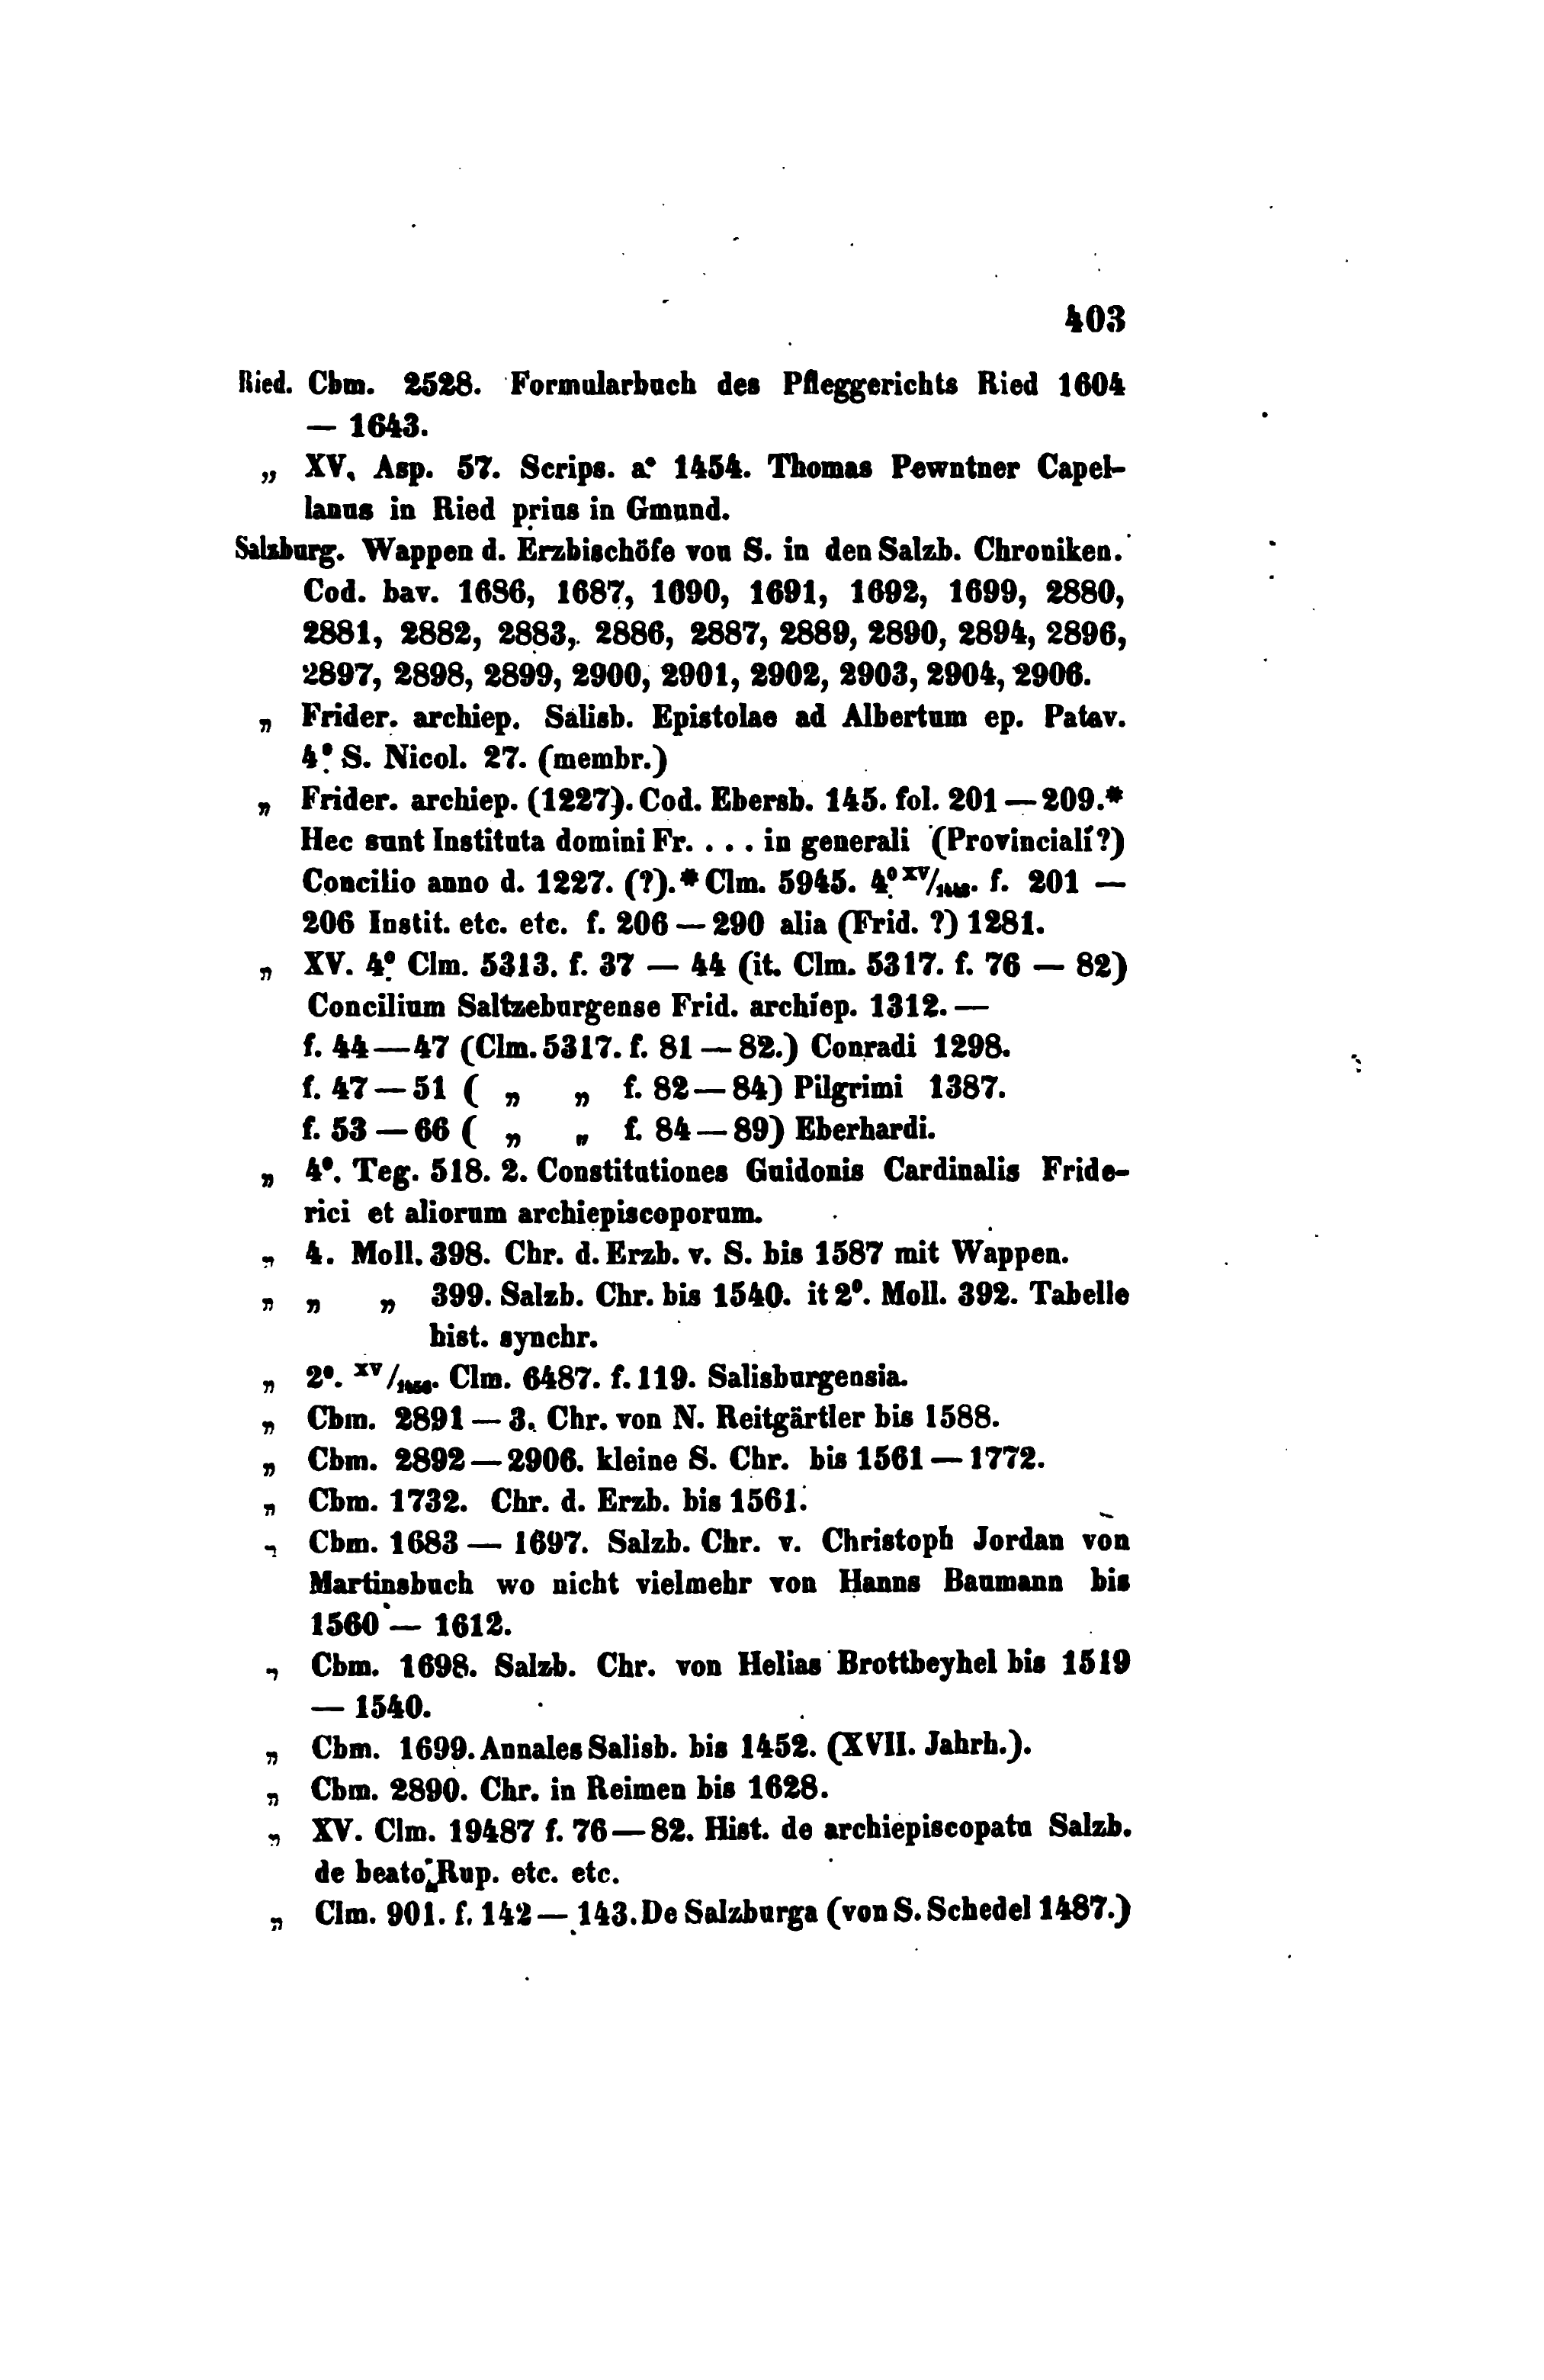 403
Ried. Cbm. 2528. Formularbuch des Pfleggerichts Ried 1604
— 1643.
„ XV. Asp. 57. Scrips. a° 1454. Thomas Pewntner Capel-
lanus in Ried prius in Gmund.
Salzburg. Wappen d. Erzbischöfe von S. in den Salzb. Chroniken.
Cod. bav. 1686, 1687, 1690, 1691, 1692, 1699, 2880,
2881, 2882, 2883, 2886, 2887, 2889, 2890, 2894, 2896,
2897, 2898, 2899, 2900, 2901, 2902, 2903, 2904, 2906.
„ Frider. archiep. Salisb. Epistolae ad Albertum ep. Patav.
4° S. Nicol. 27. (membr.)
„ Frider. archiep. (1227). Cod. Ebersb. 145. fol. 201 — 209.*
Hec sunt Instituta domini Fr. . . . in generali (Provinciali?)
Concilio anno d. 1227. (?).* Clm. 5945. 4° XV/. f. 201 —
206 Instit. etc. etc. f. 206 — 290 alia (Frid. ?) 1281.
„ XV. 4° Clm. 5313. f. 37 — 44 (it. Clm. 5317. f. 76 — 82)
Concilium Saltzeburgense Frid. archiep. 1312. —
f. 44 — 47 (Clm. 5317. f. 81 — 82.) Conradi 1298.
f. 47 — 51 ( „ „ f. 82 — 84) Pilgrimi 1387.
f. 53 — 66 ( „ „ f. 84 — 89) Eberhardi.
„ 4°. Teg. 518. 2. Constitutiones Guidonis Cardinalis Fride-
rici et aliorum archiepiscoporum.
„ 4. Moll. 398. Chr. d. Erzb. v. S. bis 1587 mit Wappen.
„ „ „ 399. Salzb. Chr. bis 1540. it 2°. Moll. 392. Tabelle
hist. synchr.
„ 2°. XV/. Clm. 6487. f. 119. Salisburgensia.
„ Cbm. 2891 — 3. Chr. von N. Reitgärtler bis 1588.
„ Cbm. 2892 — 2906. kleine S. Chr. bis 1561 — 1772.
„ Cbm. 1732. Chr. d. Erzb. bis 1561.
„ Cbm. 1683 — 1697. Salzb. Chr. v. Christoph Jordan von
Martinsbuch wo nicht vielmehr von Hanns Baumann bis
1560 — 1612.
„ Cbm. 1698. Salzb. Chr. von Helias Brottbeyhel bis 1519
— 1540.
„ Cbm. 1699. Annales Salisb. bis 1452. (XVII. Jahrh.).
„ Cbm. 2890. Chr. in Reimen bis 1628.
„ XV. Clm. 19487 f. 76 — 82. Hist. de archiepiscopatu Salzb.
de beato Rup. etc. etc.
„ Clm. 901. f. 142 — 143. De Salzburga (von S. Schedel 1487.)